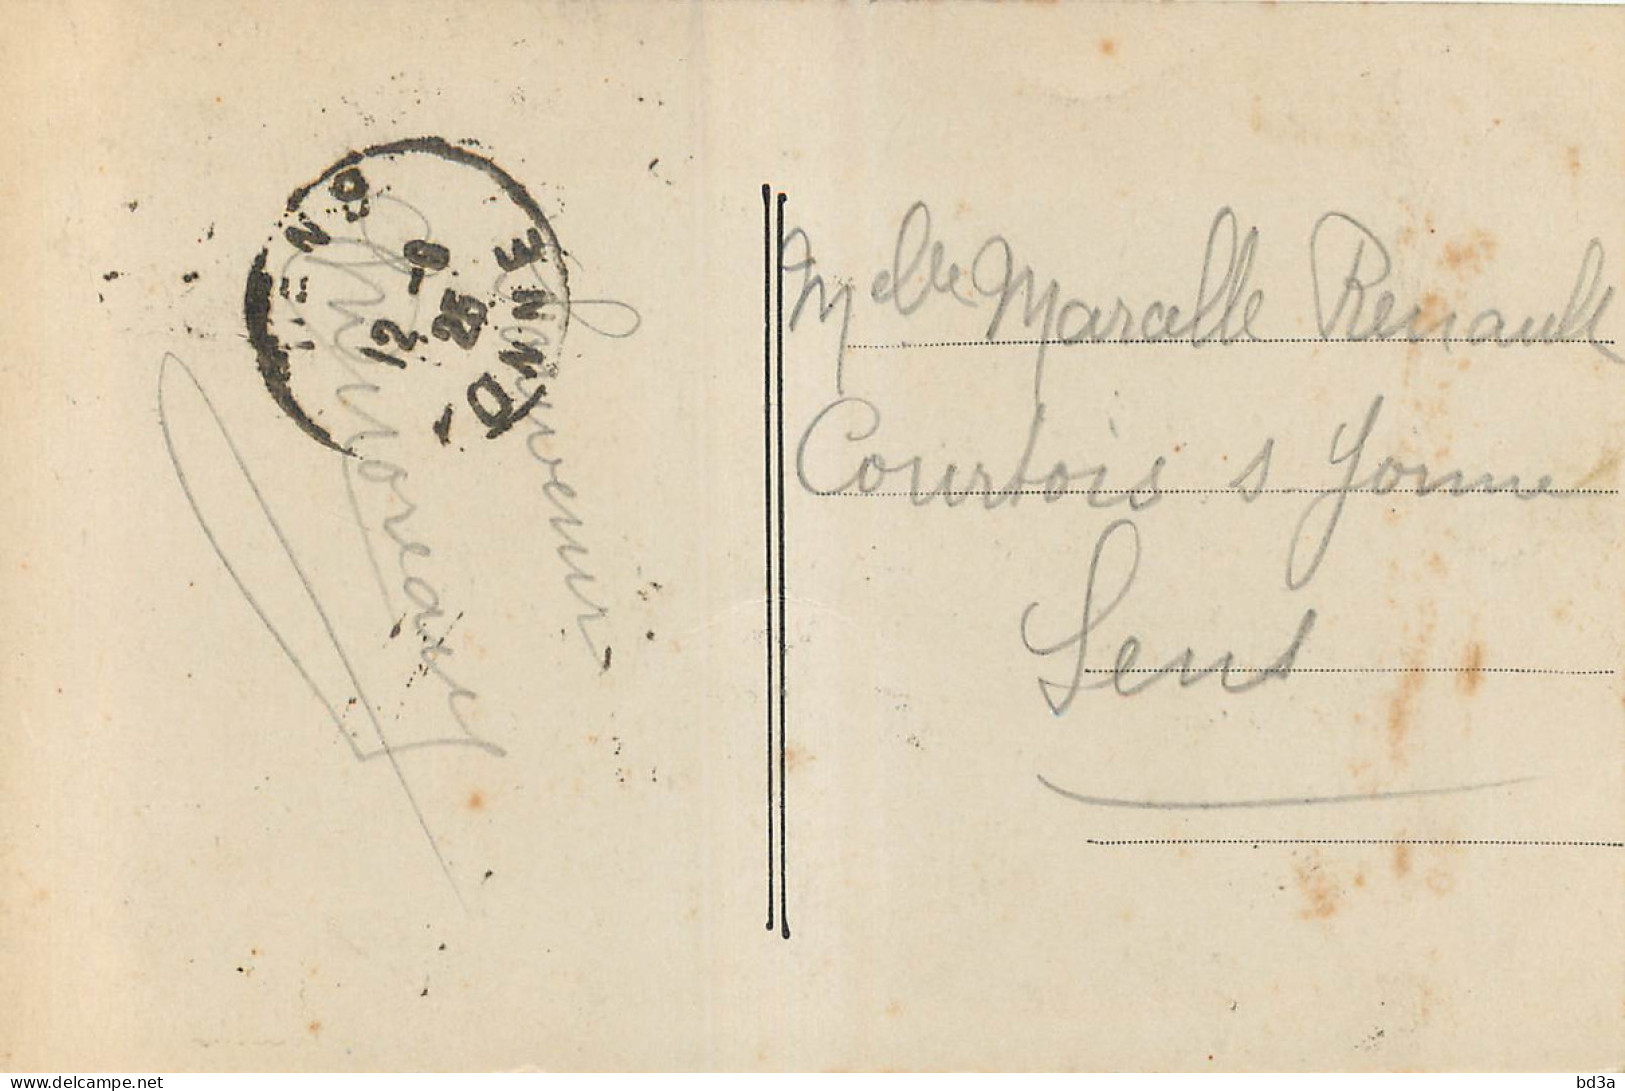 Souvenir
YONNE
12 -8
25
Melle Marcelle Renault
Courtois s. Yonne
Sens
delcampe.net
bd3a